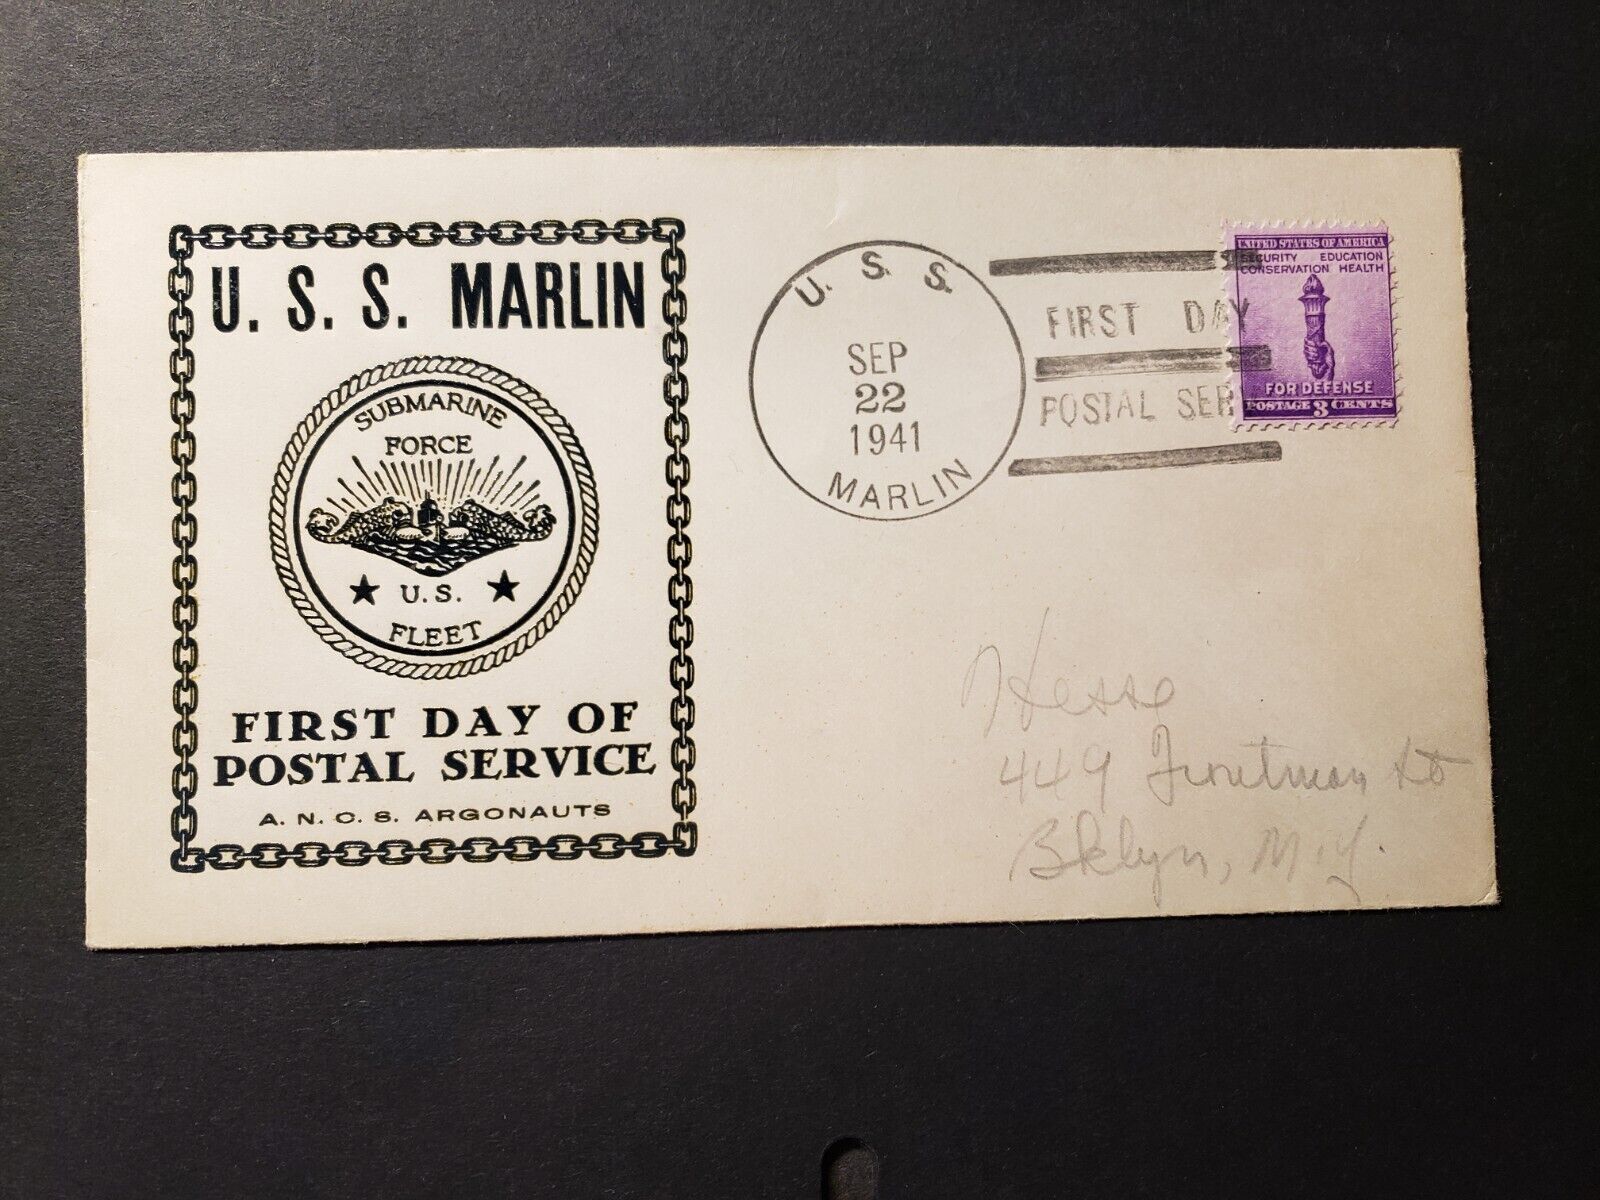 U. S. S. MARLIN
SUBMARINE
FORCE
U. S.
FLEET
FIRST DAY OF
POSTAL SERVICE
A. N. C. S. ARGONAUTS
U. S. S.
SEP
22
1941
MARLIN
FIRST DAY
POSTAL SER
UNITED STATES OF AMERICA
SECURITY EDUCATION
CONSERVATION HEALTH
FOR DEFENSE
POSTAGE 3 CENTS
Hesse
449 Troutman St
Bklyn, N.Y.